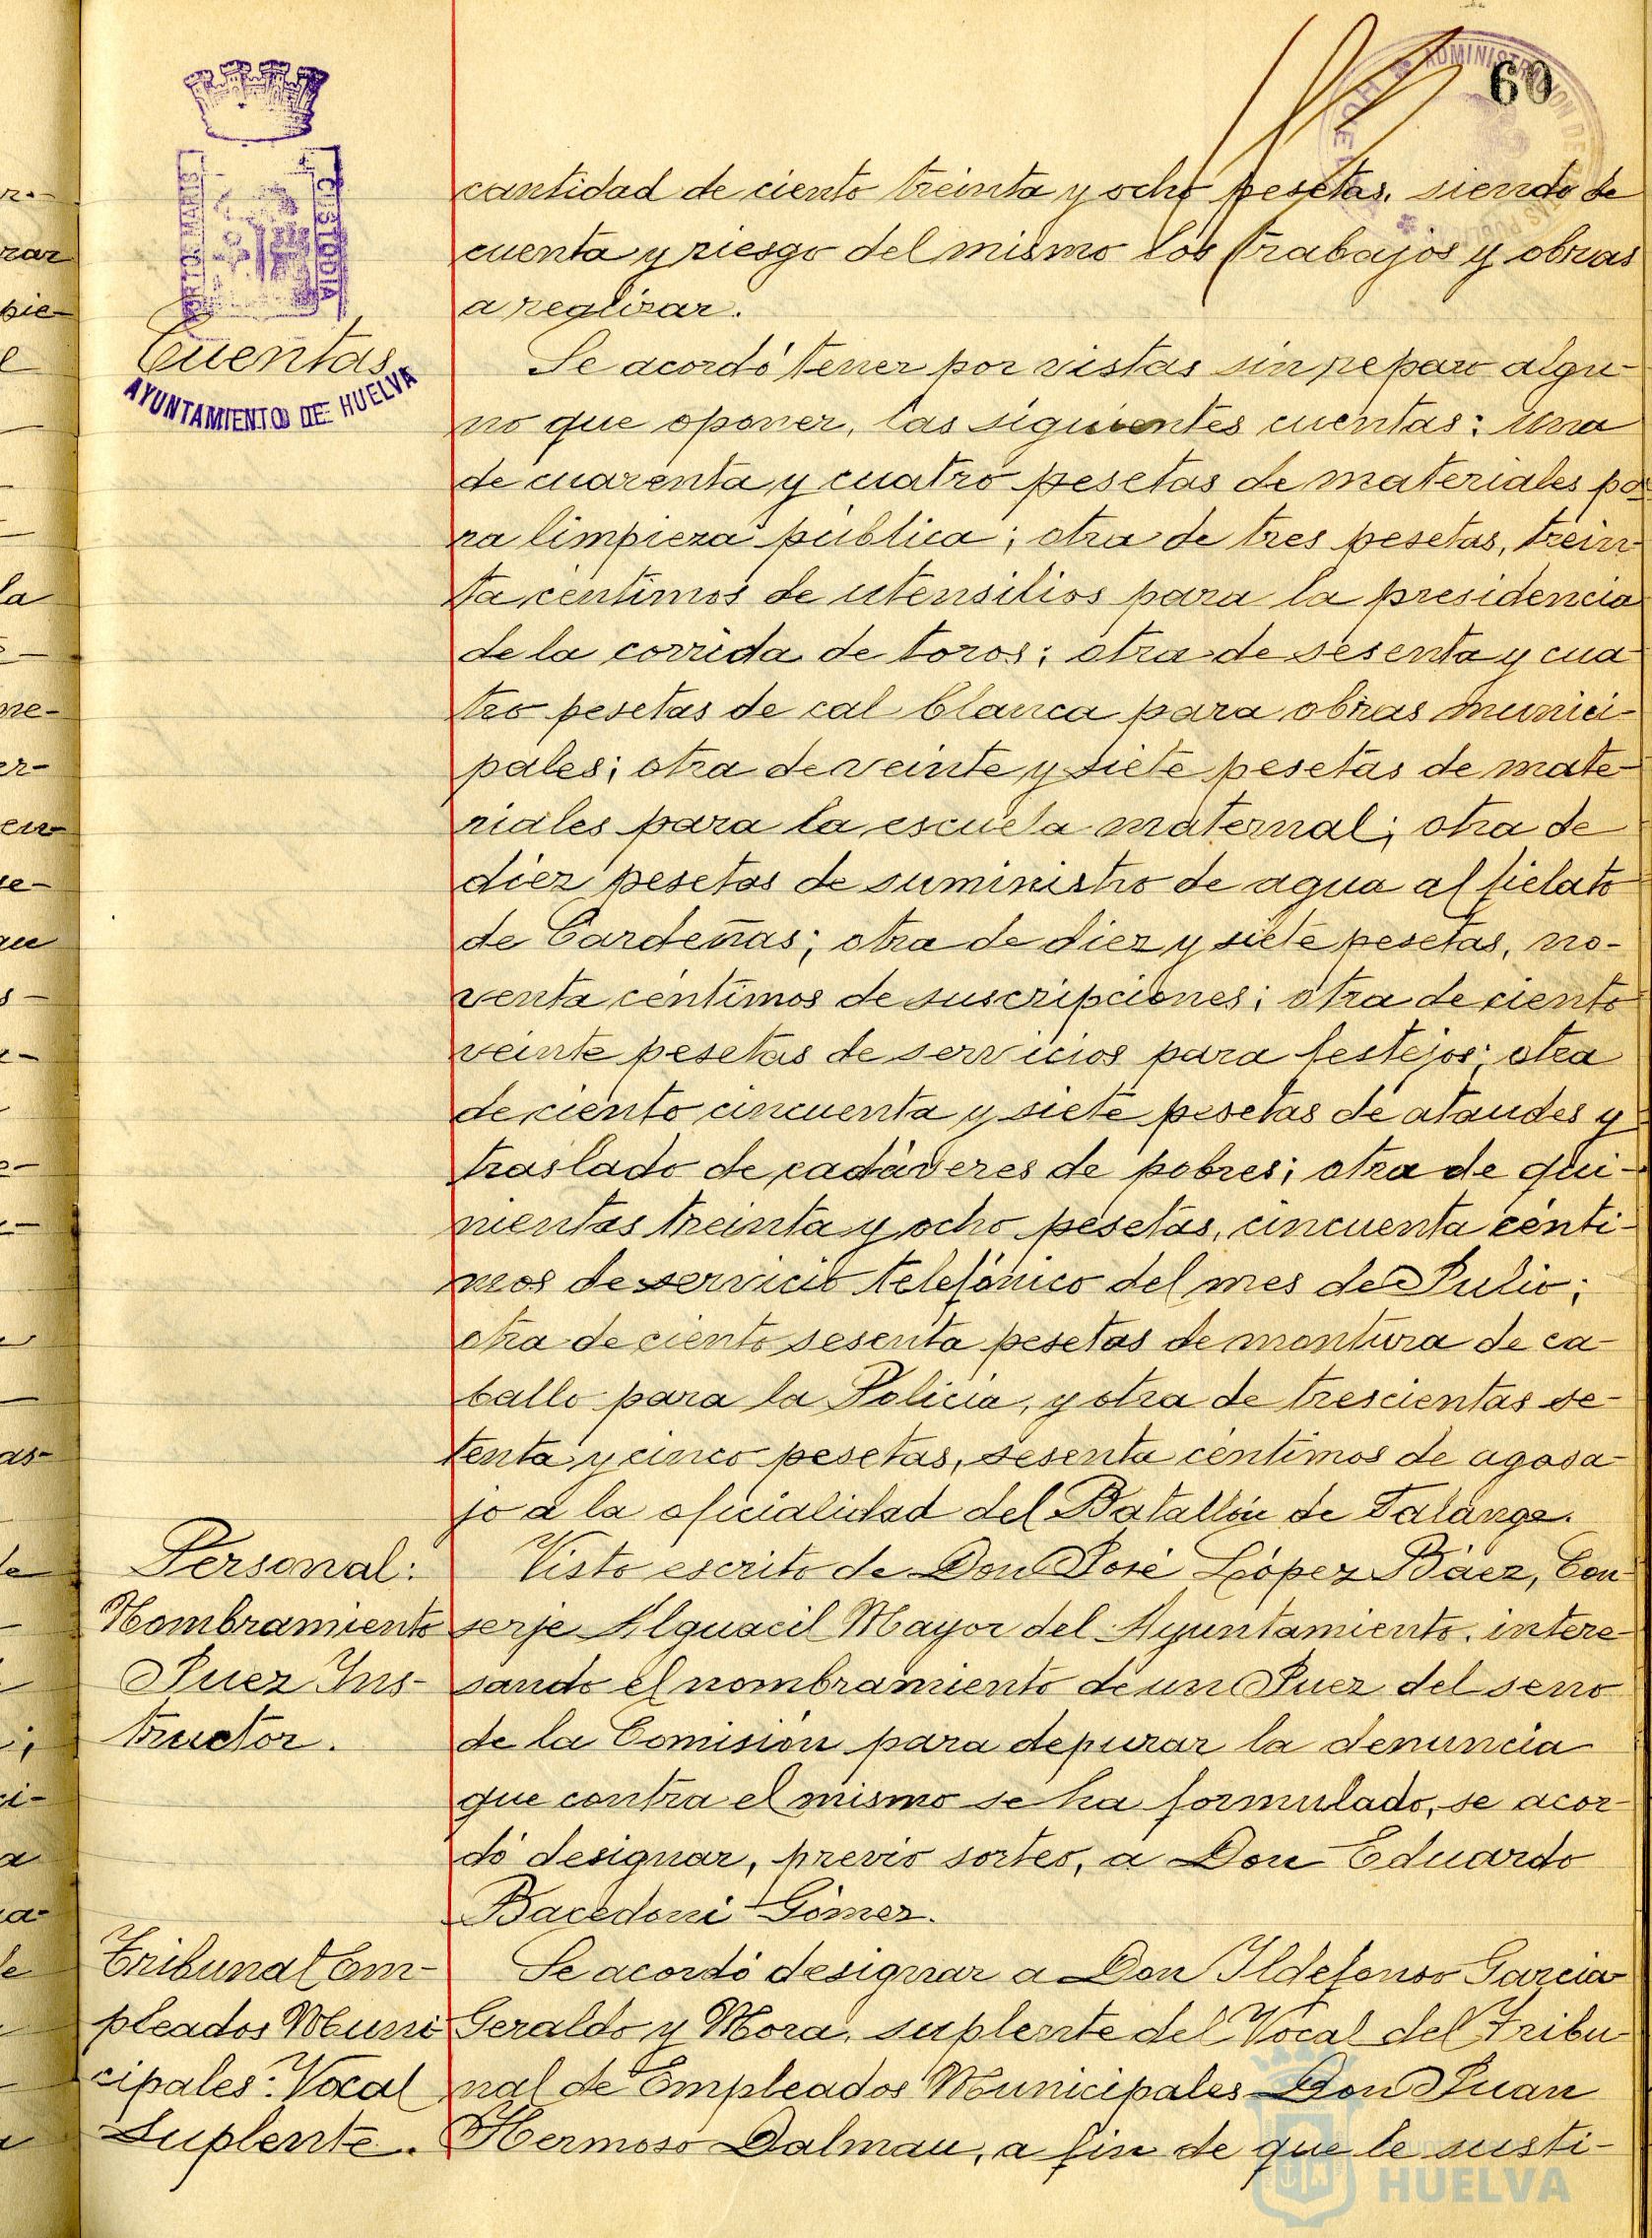 60
ADMINISTRACION DE
HUELVA
PORTUS MARIS
CUSTODIA
AYUNTAMIENTO DE HUELVA
cantidad de ciento treinta y ocho pesetas, siendo de
cuenta y riesgo del mismo los trabajos y obras
a realizar.
Cuentas
Se acordó tener por vistas sin reparo algu-
no que oponer, las siguientes cuentas: una
de cuarenta y cuatro pesetas de materiales pa-
ra limpieza pública; otra de tres pesetas, trein-
ta céntimos de utensilios para la presidencia
de la corrida de toros; otra de sesenta y cua-
tro pesetas de cal blanca para obras munici-
pales; otra de veinte y siete pesetas de mate-
riales para la escuela maternal; otra de
diez pesetas de suministro de agua al fielato
de Cardeñas; otra de diez y siete pesetas, no-
venta céntimos de suscripciones; otra de ciento
veinte pesetas de servicios para festejos; otra
de ciento cincuenta y siete pesetas de ataudes y
traslado de cadáveres de pobres; otra de qui-
nientas treinta y ocho pesetas, cincuenta cénti-
mos de servicio telefónico del mes de Julio;
otra de ciento sesenta pesetas de montura de ca-
ballo para la Policía, y otra de trescientas se-
tenta y cinco pesetas, sesenta céntimos de agasa-
jo a la oficialidad del Batallón de Falange.
Personal:
Nombramiento
Juez Ins-
tructor.
Visto escrito de Don José López Báez, Con-
serje Alguacil Mayor del Ayuntamiento, intere-
sando el nombramiento de un Juez del seno
de la Comisión para depurar la denuncia
que contra el mismo se ha formulado, se acor-
dó designar, previo sorteo, a Don Eduardo
Bacedoni Gómez.
Tribunal Em-
pleados Muni
cipales: Vocal
Suplente.
Se acordó designar a Don Ildefonso Garcia
Geraldo y Mora, suplente del Vocal del Tribu-
nal de Empleados Municipales Don Juan
Hermoso Dalmau, a fin de que le susti-
HUELVA